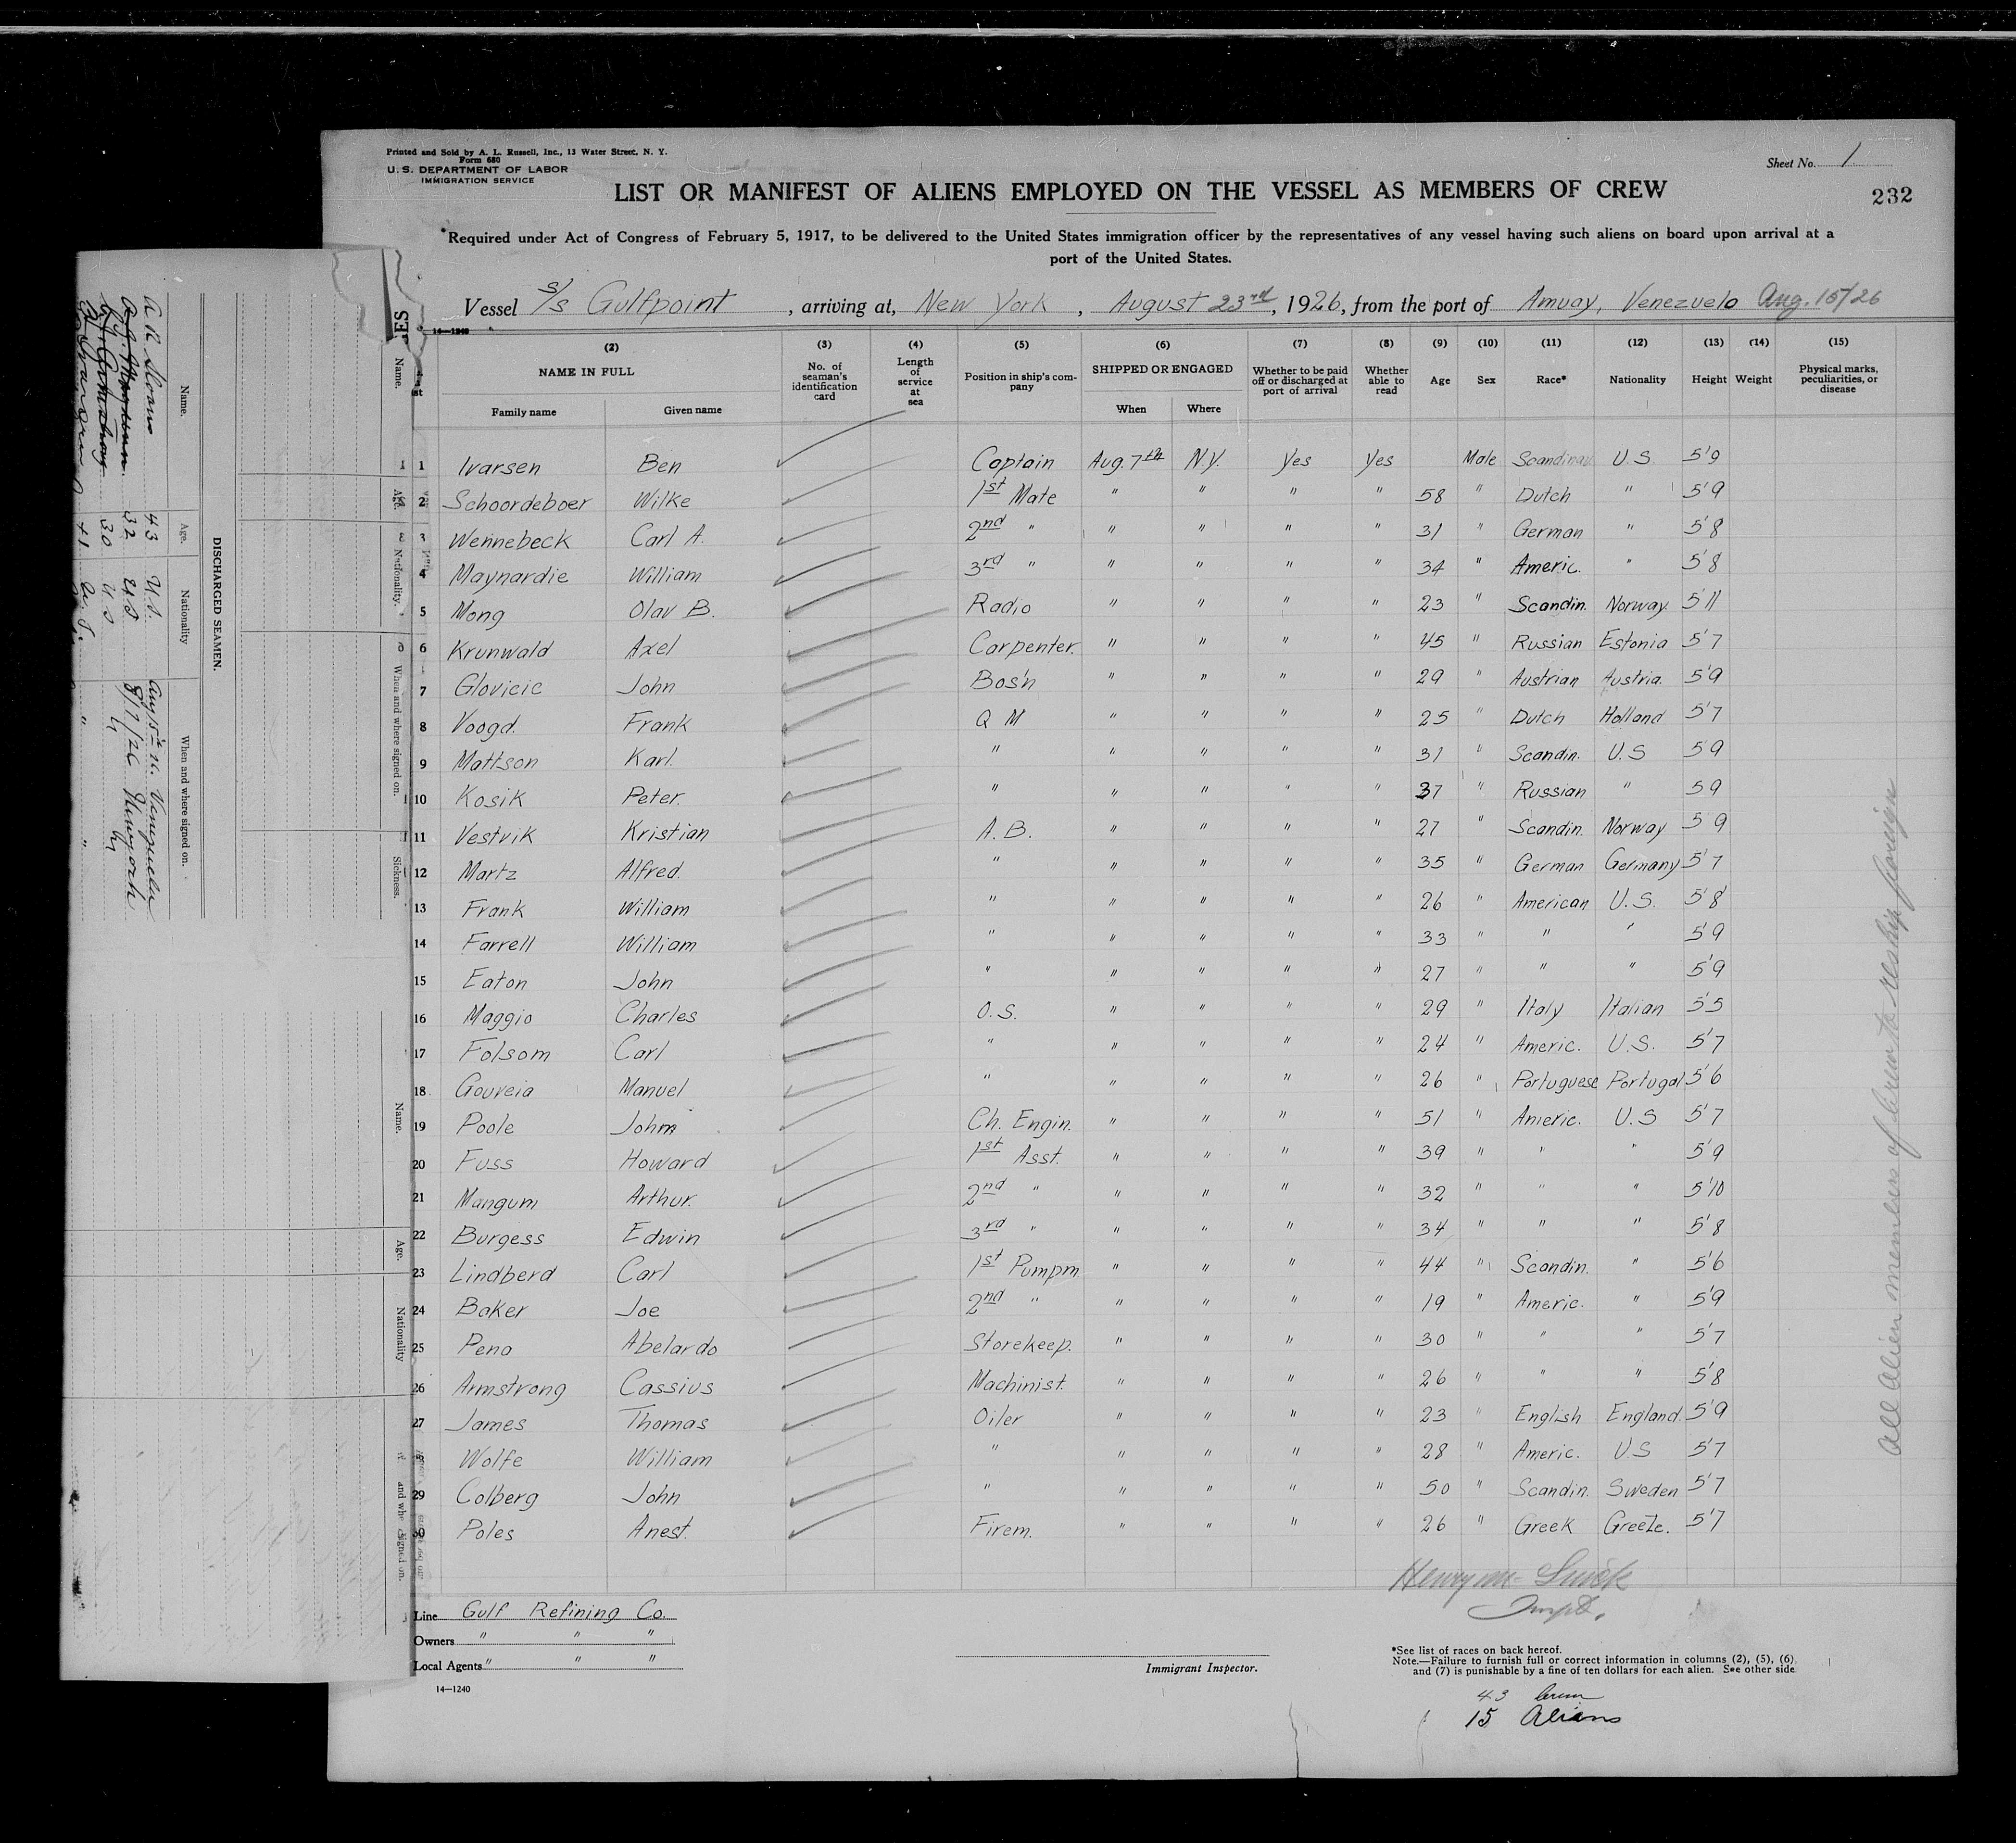 Printed and Sold by A. L. Russell, Inc., 13 Water Street, N. Y.
Form 680
U. S. DEPARTMENT OF LABOR
IMMIGRATION SERVICE
Sheet No. 1
232
LIST OR MANIFEST OF ALIENS EMPLOYED ON THE VESSEL AS MEMBERS OF CREW
*Required under Act of Congress of February 5, 1917, to be delivered to the United States immigration officer by the representatives of any vessel having such aliens on board upon arrival at a
port of the United States.
Vessel S/s Gulfpoint, arriving at, New York, August 23rd, 1926, from the port of Amuay, Venezuela Aug. 15/26
14—1240
(2) (3) (4) (5) (6) (7) (8) (9) (10) (11) (12) (13) (14) (15)
NAME IN FULL No. of seaman's identification card Length of service at sea Position in ship's company SHIPPED OR ENGAGED Whether to be paid off or discharged at port of arrival Whether able to read Age Sex Race* Nationality Height Weight Physical marks, peculiarities, or disease
Family name Given name When Where
1 Ivarsen Ben Captain Aug. 7th N.Y. Yes Yes Male Scandinav. U.S. 5'9
2 Schoordeboer Wilke 1st Mate " " " " 58 " Dutch " 5'9
3 Wennebeck Carl A. 2nd " " " " " 31 " German " 5'8
4 Maynardie William 3rd " " " " " 34 " Americ. " 5'8
5 Mong Olav B. Radio " " " " 23 " Scandin. Norway. 5'11
6 Krunwald Axel Carpenter. " " " " 45 " Russian Estonia 5'7
7 Glovicic John Bos'n " " " " 29 " Austrian Austria. 5'9
8 Voogd. Frank Q M " " " " 25 " Dutch Holland 5'7
9 Mattson Karl. " " " " " 31 " Scandin. U.S 5'9
10 Kosik Peter. " " " " " 37 " Russian " 5'9
11 Vestvik Kristian A. B. " " " " 27 " Scandin. Norway 5'9
12 Martz Alfred. " " " " " 35 " German Germany 5'7
13 Frank William " " " " " 26 " American U.S. 5'8
14 Farrell William " " " " " 33 " " " 5'9
15 Eaton John " " " " " 27 " " " 5'9
16 Maggio Charles O.S. " " " " 29 " Italy Italian 5'5
17 Folsom Carl " " " " " 24 " Americ. U.S. 5'7
18 Gouveia Manuel " " " " " 26 " Portuguese Portugal 5'6
19 Poole John Ch. Engin. " " " " 51 " Americ. U.S 5'7
20 Fuss Howard 1st Asst. " " " " 39 " " " 5'9
21 Mangum Arthur. 2nd " " " " " 32 " " " 5'10
22 Burgess Edwin 3rd " " " " " 34 " " " 5'8
23 Lindberd Carl 1st Pumpm " " " " 44 " Scandin. " 5'6
24 Baker Joe 2nd " " " " " 19 " Americ. " 5'9
25 Pena Abelardo Storekeep. " " " " 30 " " " 5'7
26 Armstrong Cassius Machinist. " " " " 26 " " " 5'8
27 James Thomas Oiler " " " " 23 " English England. 5'9
Wolfe William " " " " " 28 " Americ. U.S 5'7
29 Colberg John " " " " " 50 " Scandin. Sweden 5'7
30 Poles Anest Firem. " " " " 26 " Greek Greece. 5'7
All Alien members of Crew to reship foreign
Line Gulf Refining Co.
Owners " " "
Local Agents " " "
14—1240
Immigrant Inspector.
*See list of races on back hereof.
Note.—Failure to furnish full or correct information in columns (2), (5), (6)
and (7) is punishable by a fine of ten dollars for each alien. See other side
43 Crew
15 Aliens
DISCHARGED SEAMEN.
Name. Age. Nationality When and where signed on.
A R Sloans 43 U.S. Aug 15 Venezuela
32 U S 8/7/26 New york
30 U S " "
41 U.S. " "
Name. Age. Nationality. When and where signed on. Sickness.
Name. Age. Nationality